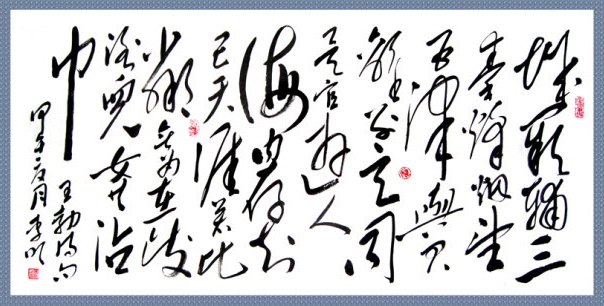 城阙辅三
秦烽烟望
五津與君
離别意同
是宦游人
海内存知
己天涯若比
鄰无为在歧
路兒女共沾
巾
王勃诗句
甲午 月李